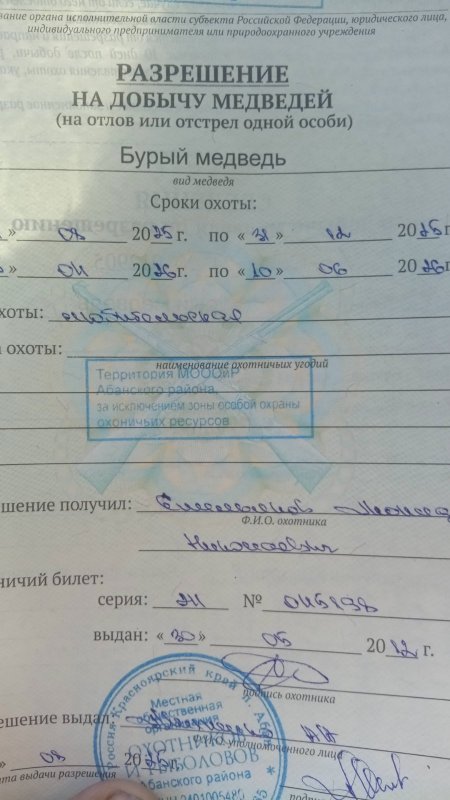 вание органа исполнительной власти субъекта Российской Федерации, юридического лица,
индивидуального предпринимателя или природоохранного учреждения
РАЗРЕШЕНИЕ
НА ДОБЫЧУ МЕДВЕДЕЙ
(на отлов или отстрел одной особи)
Бурый медведь
вид медведя
Сроки охоты:
» 08 2025 г. по « 31 » 12 2025 г.
» 04 2026 г. по « 10 » 06 2026 г.
хоты: любительская
а охоты:
наименование охотничьих угодий
Территория МОООиР
Абанского района,
за исключением зоны особой охраны
охоничьих ресурсов
шение получил:
Ф.И.О. охотника
Николаевич
ничий билет:
серия: 24 № 045198
выдан: « 30 » 05 2012 г.
подпись охотника
решение выдал:
Ф.И.О. уполномоченного лица
» 08
ата выдачи разрешения
подп
Россия Красноярский край п. Абан
Местная
общественная
организация
ОХОТНИКОВ
И РЫБОЛОВОВ
Абанского района